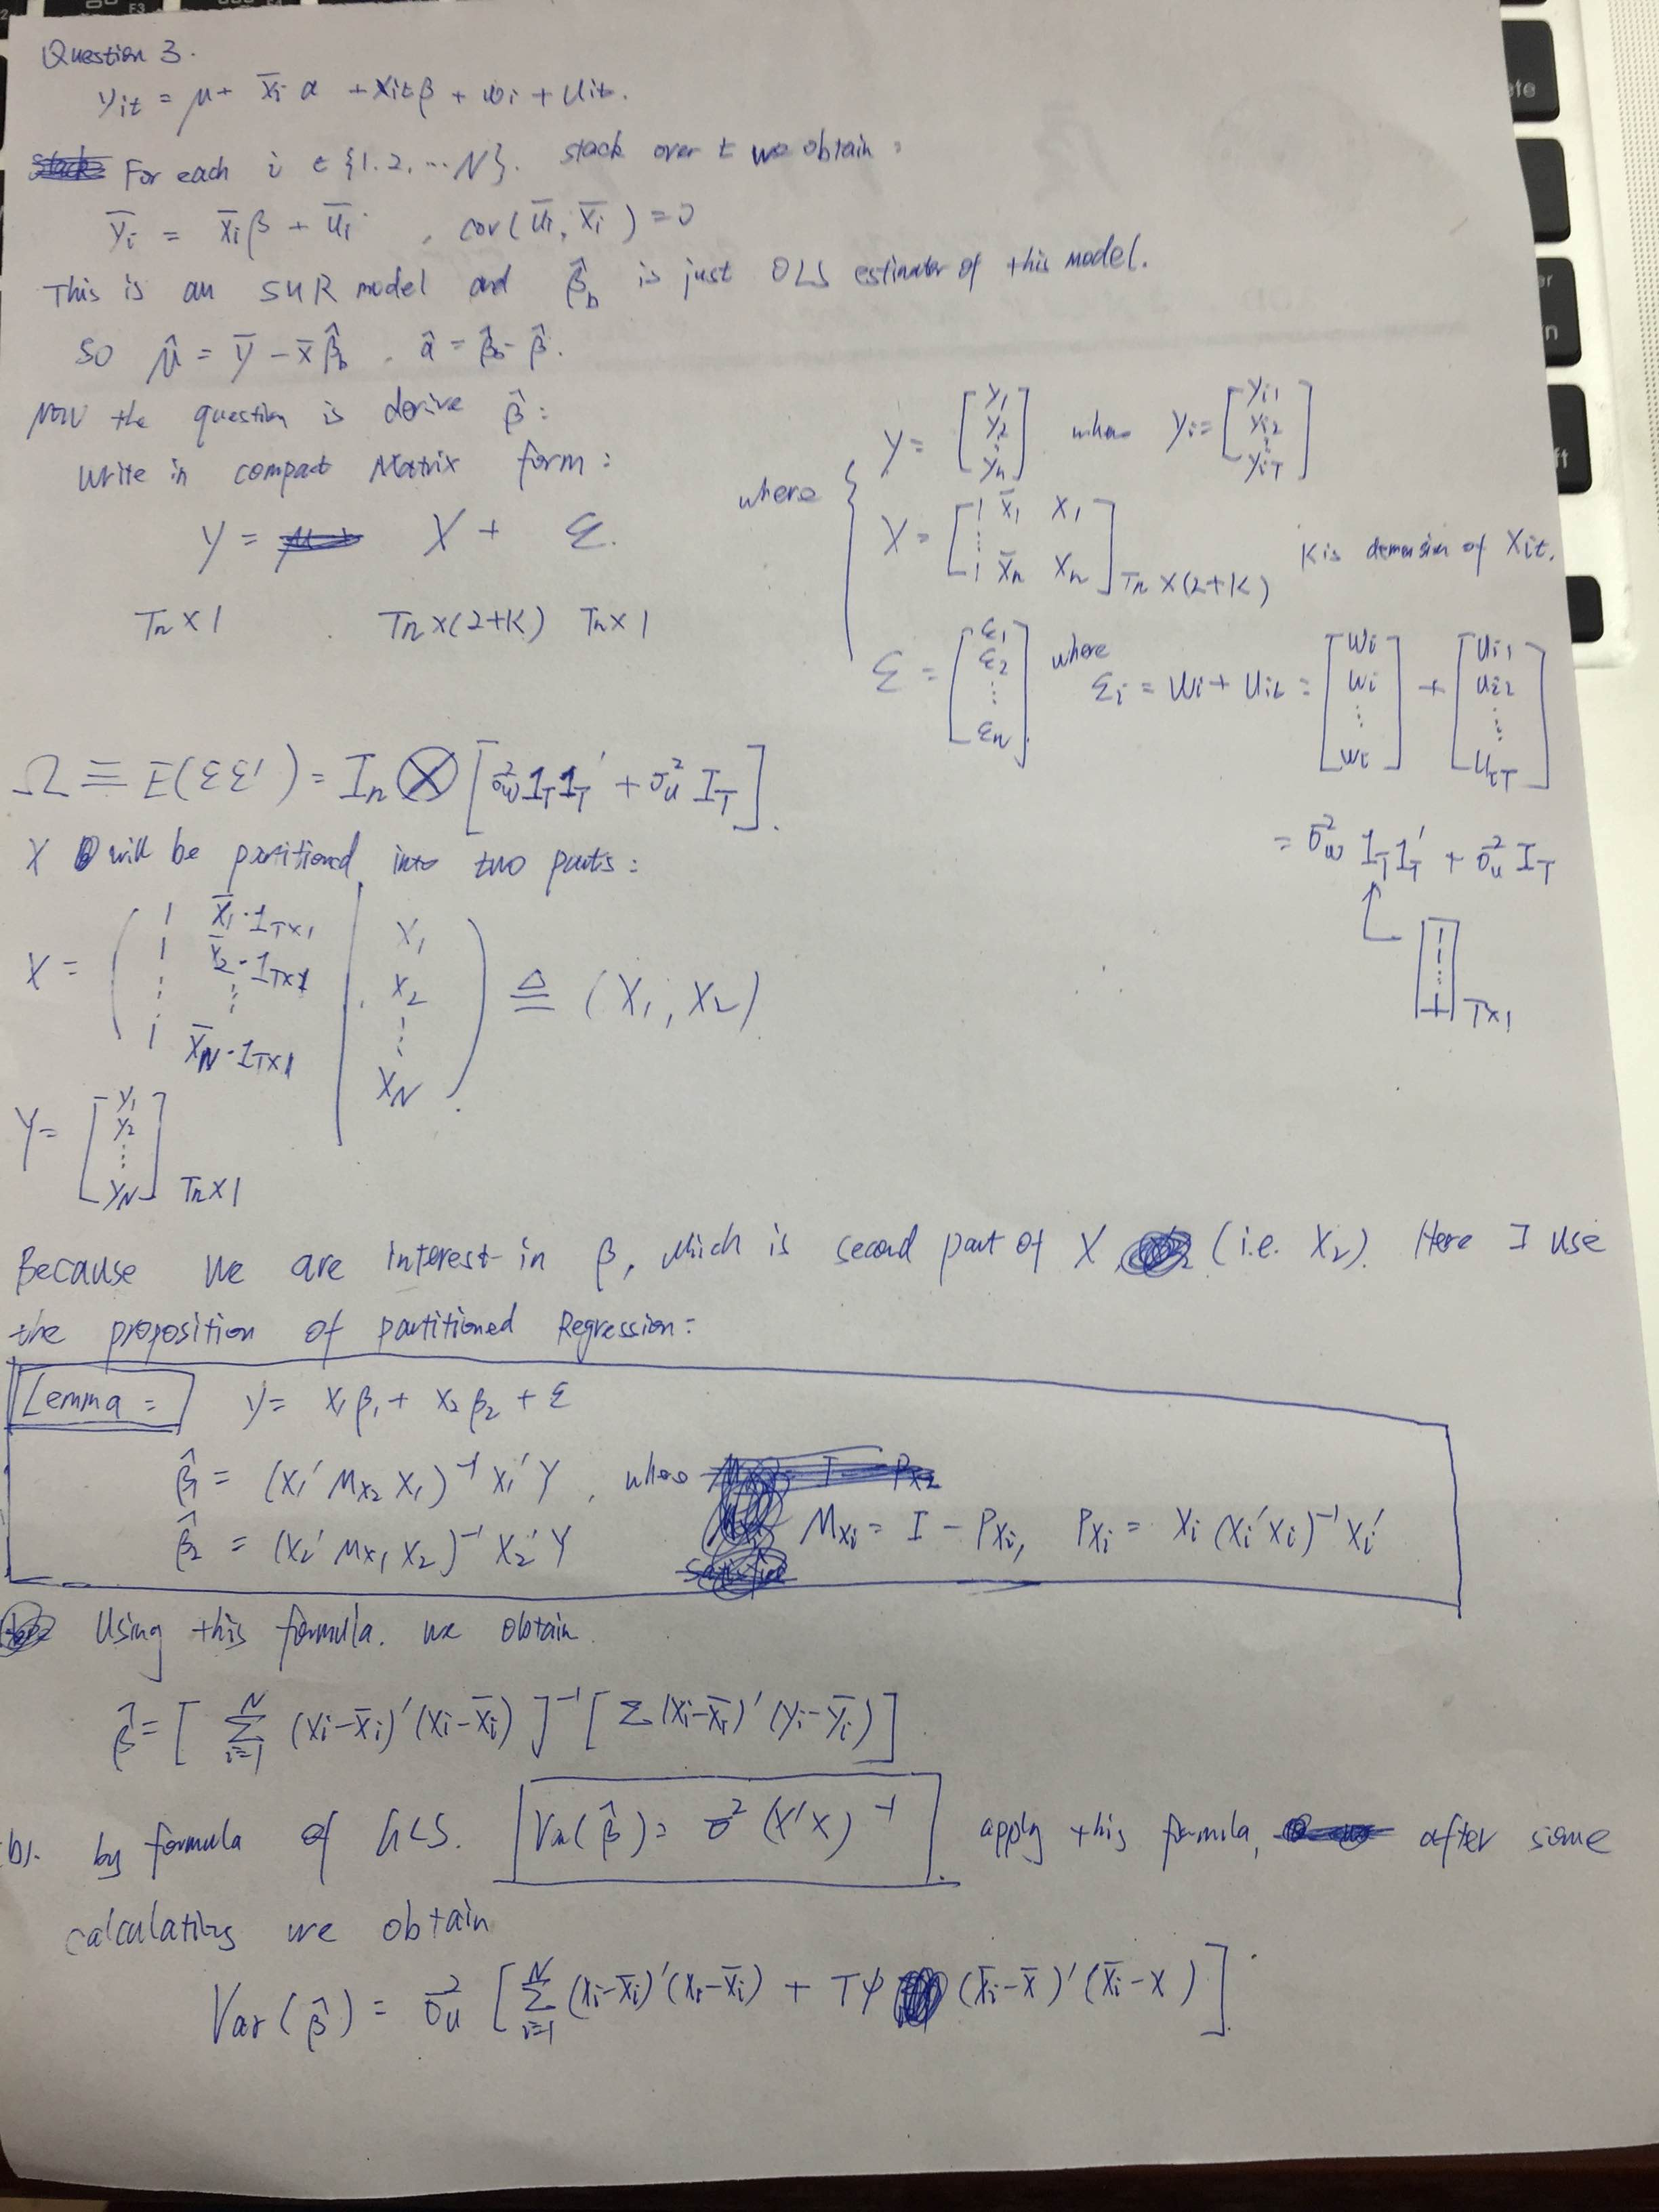 Question 3.
y_it = μ + x̄_i α + x_it β + w_i + u_it.
For each i ∈ {1. 2. ... N}. stack over t we obtain:
ȳ_i = x̄_i β + ū_i, cov(ū_i, x̄_i) = 0
This is an SUR model and β̂_b is just OLS estimator of this model.
so μ̂ = ȳ - x̄ β̂_b. α̂ = β̂_b - β̂.
Now the question is derive β̂:
write in compact Matrix form:
Y = X + ε.
Tn×1 Tn×(2+K) Tn×1
where
Y = [y_1 y_2 ⋮ y_n] where y_i = [y_i1 y_i2 ⋮ y_iT]
X = [1 x̄_1 x_1 ⋮ 1 x̄_n x_n] Tn×(2+K) K is demension of X_it.
ε = [ε_1 ε_2 ⋮ ε_N] where ε_i = w_i + u_it = [w_i w_i ⋮ w_i] + [u_i1 u_i2 ⋮ u_iT]
= σ_w² 1_T 1_T' + σ_u² I_T
[1 1 ⋮ 1] T×1
Ω ≡ E(εε') = I_n ⊗ [σ_w² 1_T 1_T' + σ_u² I_T].
X will be partitioned into two parts:
X = (1 x̄_1·1_T×1 | x_1
1 x̄_2·1_T×1 | x_2
⋮ ⋮ | ⋮
1 x̄_N·1_T×1 | x_N) ≜ (X_1, X_2)
Y = [y_1 y_2 ⋮ y_N] Tn×1
Because we are interest in β, which is second part of X (i.e. X_2). Here I use
the proposition of partitioned Regression:
Lemma: y = X_1 β_1 + X_2 β_2 + ε
β̂_1 = (X_1' M_X2 X_1)^-1 X_1' Y, where
β̂_2 = (X_2' M_X1 X_2)^-1 X_2' Y M_Xi = I - P_Xi, P_Xi = X_i (X_i' X_i)^-1 X_i'
Using this formula. we obtain.
β̂ = [Σ_{i=1}^N (x_i - x̄_i)'(x_i - x̄_i)]^-1 [Σ (x_i - x̄_i)'(y_i - ȳ_i)]
b). by formula of GLS. Var(β̂) = σ² (X'X)^-1. apply this formula, after some
calculating we obtain
Var(β̂) = σ_u² [Σ_{i=1}^N (x_i - x̄_i)'(x_i - x̄_i) + Tψ (x̄_i - x̄)'(x̄_i - x)].